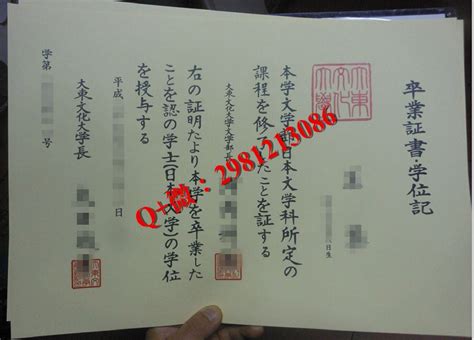 卒業証書・学位記
日生
本学文学部日本文学科所定の
課程を修了したことを証する
大東文化大学文学部長
右の証明により本学を卒業した
ことを認め学士(日本文学)の学位
を授与する
平成 日
大東文化大学長
学第 号
Q+微: 2981213086